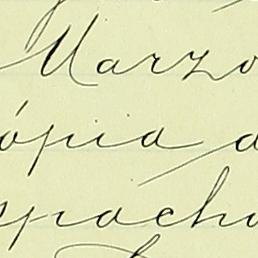 Marzo
ópia d
spacho